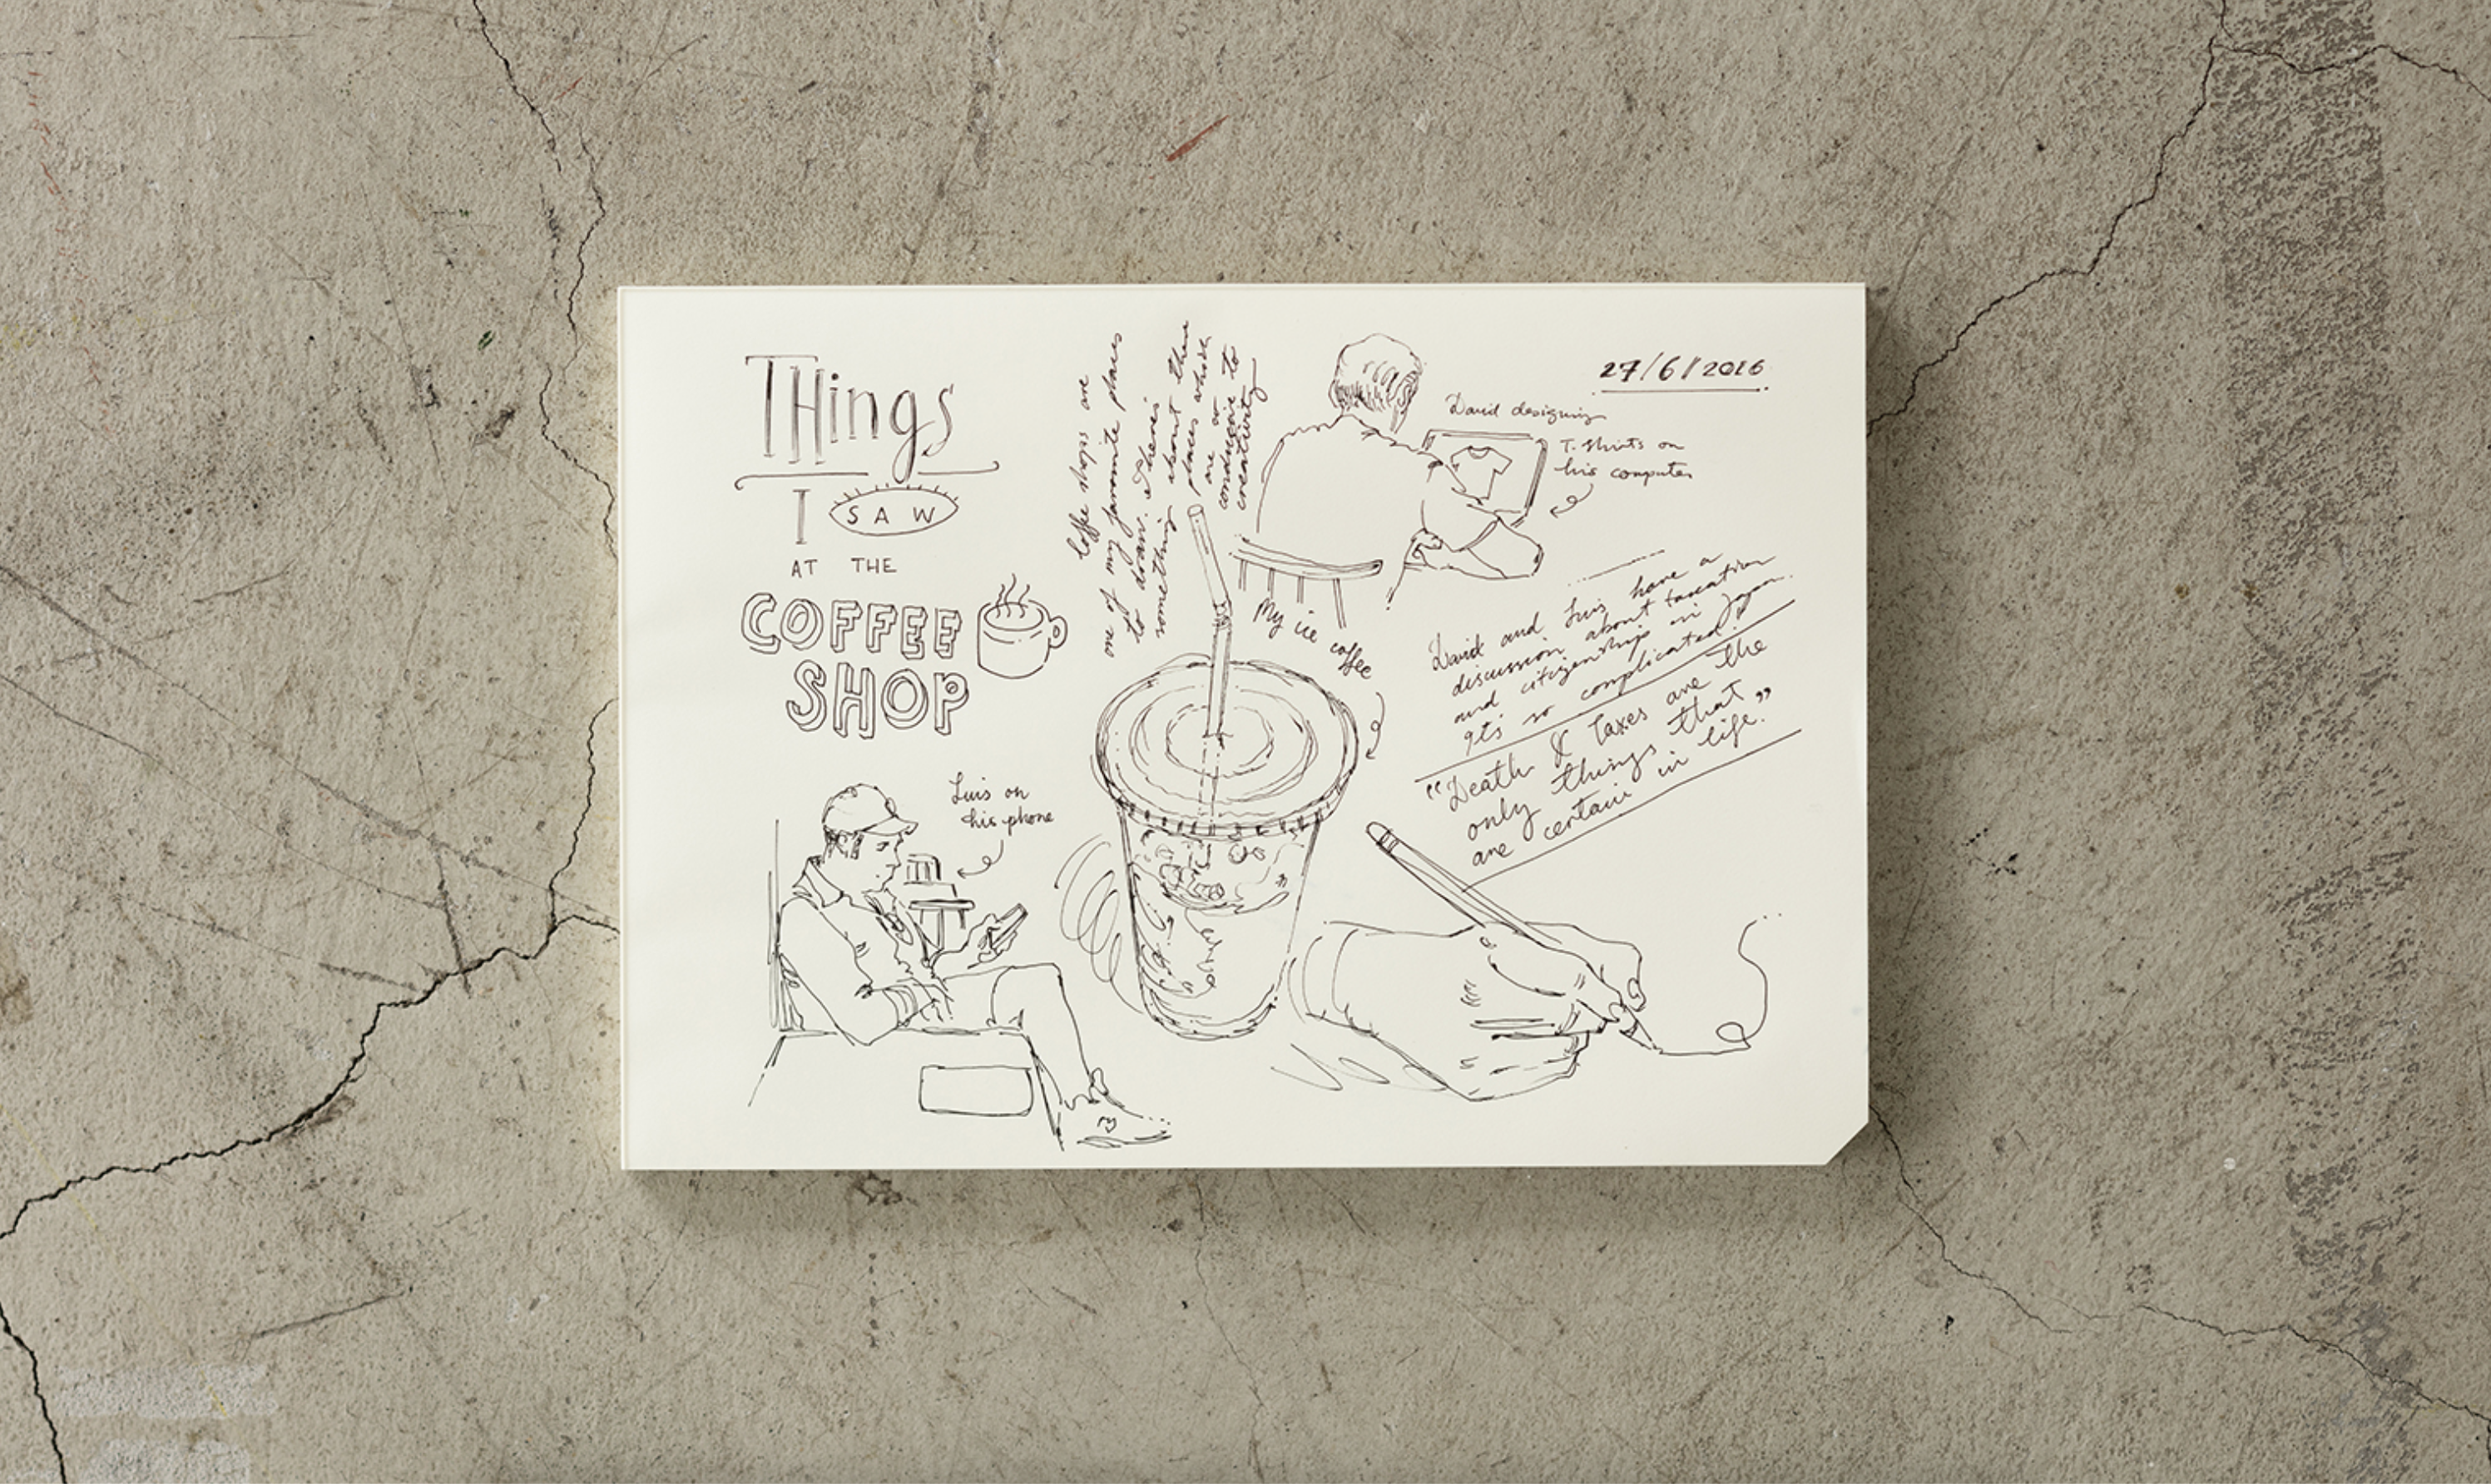 THings
I SAW
AT THE
COFFEE
SHOP
Coffee shops are
one of my favorite places
to draw. There's
something about these
places which
are so
conducive to
creativity
27/6/2016
David designing
T-shirts on
his computer
My ice coffee
David and Luis have a
discussion about taxation
and citizenship in Japan.
It's so complicated!
"Death & Taxes are the
only things that
are certain in life."
Luis on
his phone